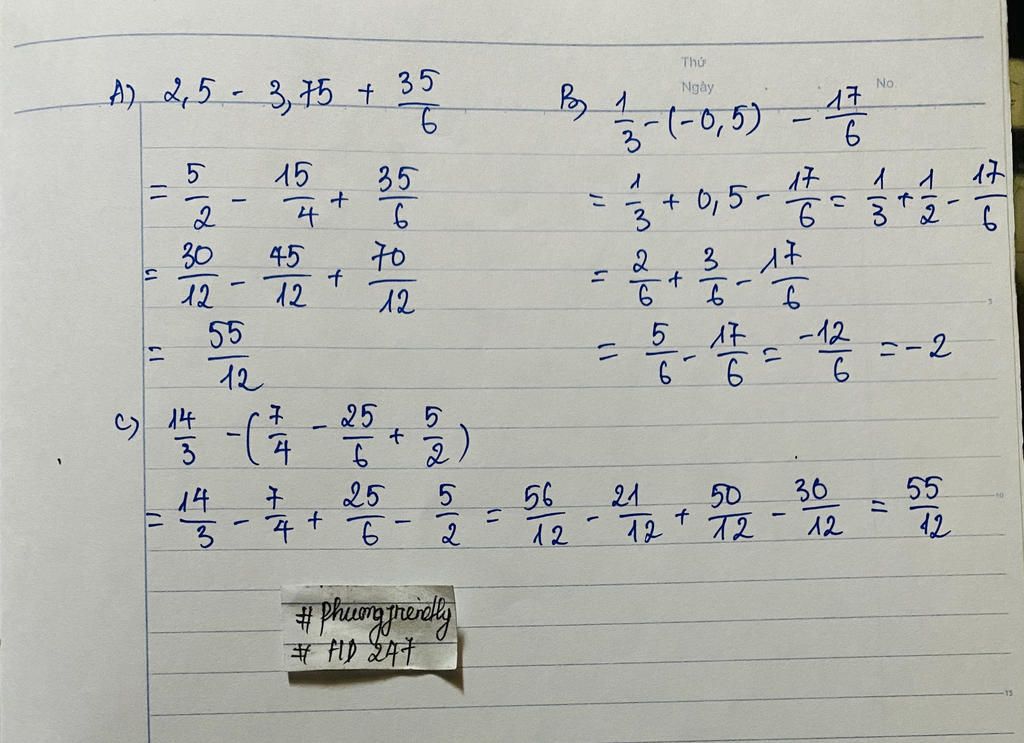 Thứ
Ngày
No.
A) 2,5 - 3,75 + 35/6
= 5/2 - 15/4 + 35/6
= 30/12 - 45/12 + 70/12
= 55/12
B) 1/3 - (-0,5) - 17/6
= 1/3 + 0,5 - 17/6 = 1/3 + 1/2 - 17/6
= 2/6 + 3/6 - 17/6
= 5/6 - 17/6 = -12/6 = -2
C) 14/3 - (7/4 - 25/6 + 5/2)
= 14/3 - 7/4 + 25/6 - 5/2 = 56/12 - 21/12 + 50/12 - 30/12 = 55/12
# phuongfriendly
# HD 247
5
10
15